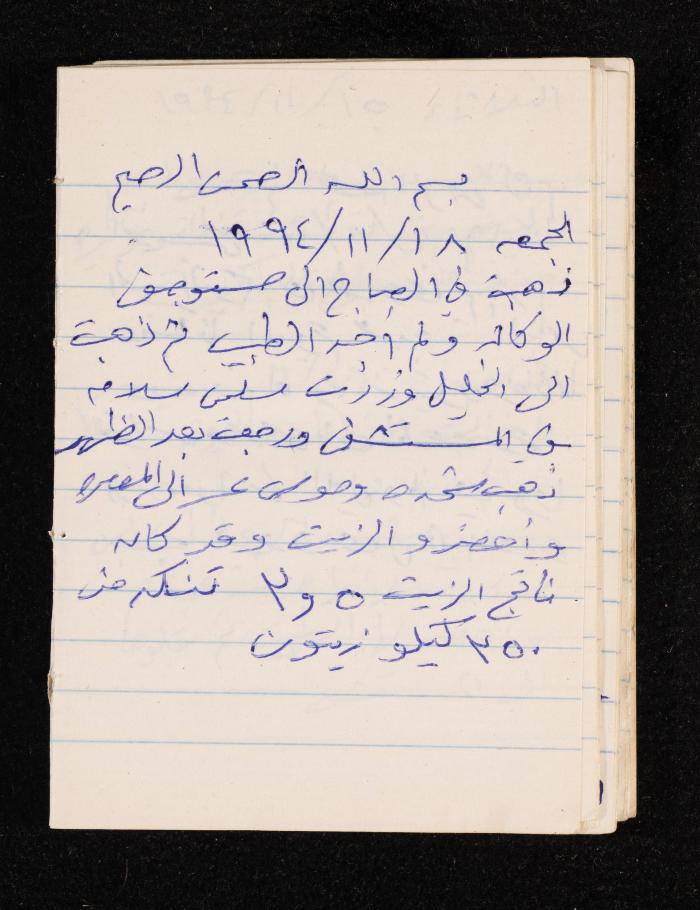 بسم الله الرحمن الرحيم
الجمعه ١٩٩٤/١١/١٨
ذهبت في الصباح الى مستوصف
الوكاله ولم أجد الطبيب ثم ذهبت
الى الخليل وزرت سلمى سلامه
في المستشفى ورجعت بعد الظهر
ذهب شحده وموسى عمر الى المعصره
وأحضرو الزيت وقد كان
ناتج الزيت ٥ و٣ تنكه من
٣٥٠ كيلو زيتون